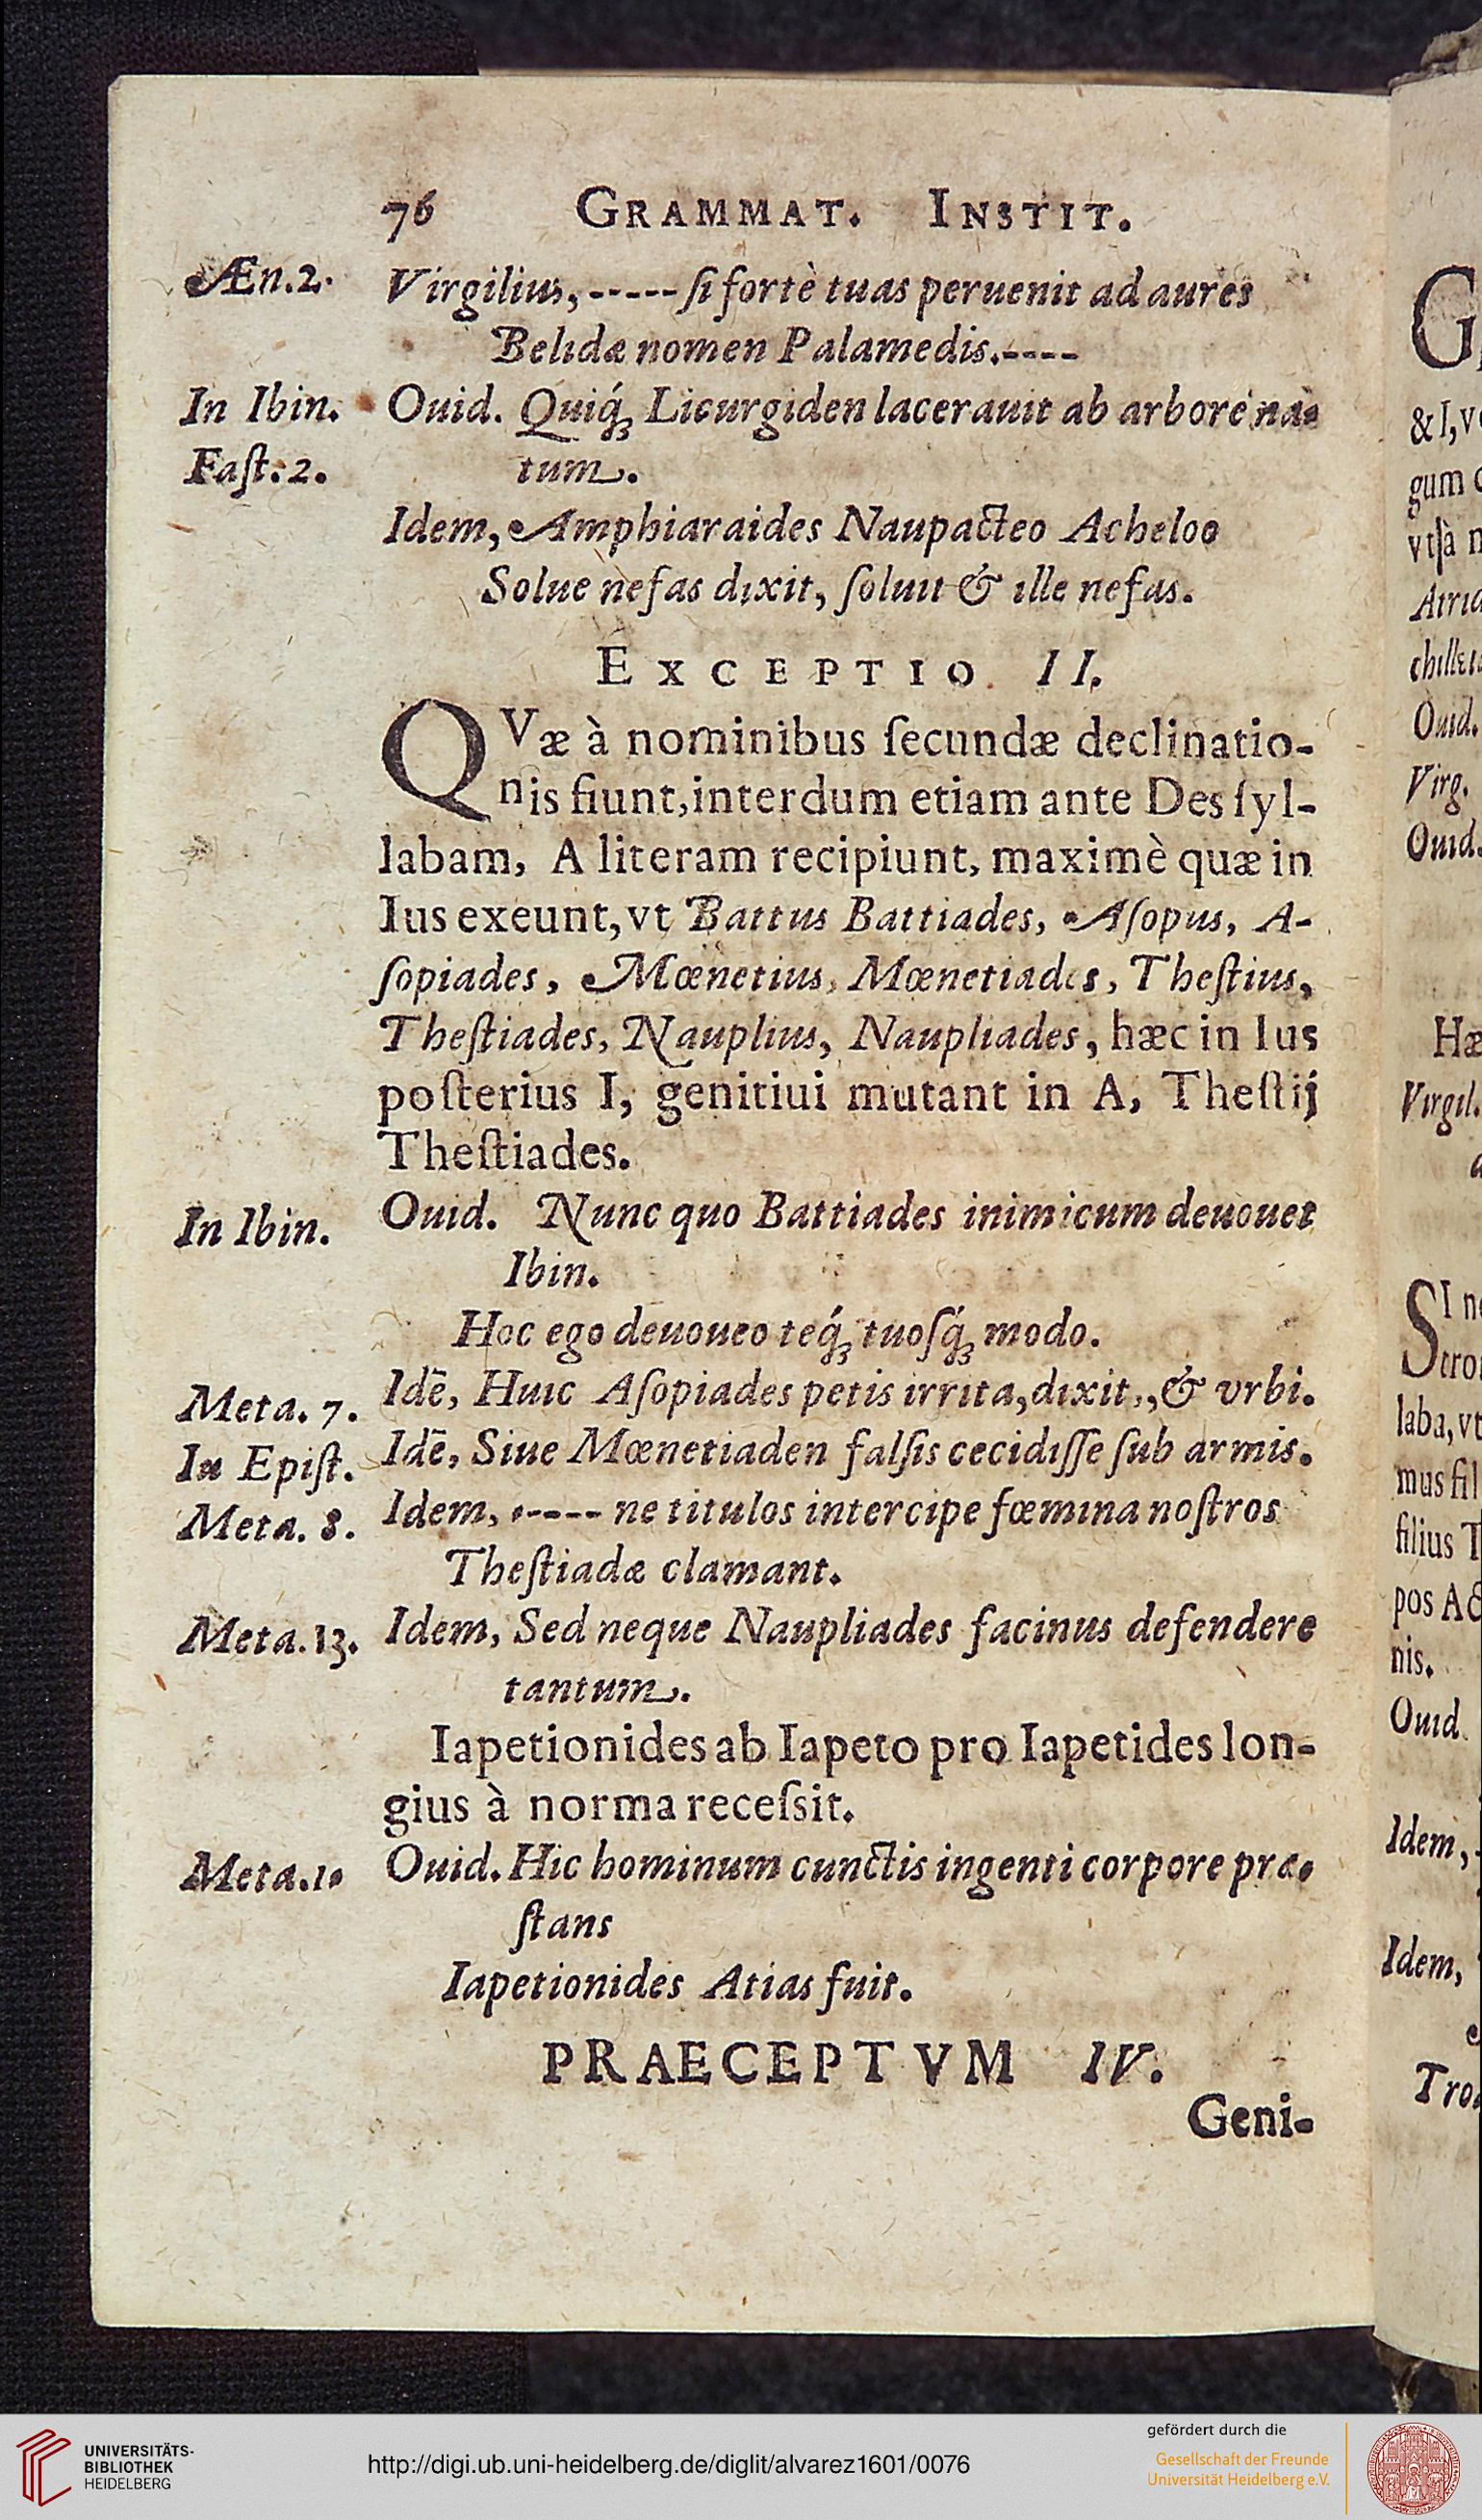 76 GRAMMAT. INSTIT.
Æn.2. Virgilius, ----- ſi fortè tuas peruenit ad aures
Belidæ nomen Palamedis.----
In Ibin. Ouid. Quiq́ꝫ Licurgiden lacerauit ab arbore na-
Faſt.2. tum.
Idem, Amphiaraides Naupacteo Acheloo
Solue nefas dixit, ſoluit & ille nefas.
EXCEPTIO II.
QVæ à nominibus ſecundæ declinatio-
nis fiunt, interdum etiam ante Des ſyl-
labam, A literam recipiunt, maximè quæ in
Ius exeunt, vt Battus Battiades, Aſopus, A-
ſopiades, Mœnetius, Mœnetiades, Theſtius,
Theſtiades, Nauplius, Naupliades, hæc in Ius
poſterius I, genitiui mutant in A, Theſtij
Theſtiades.
In Ibin. Ouid. Nunc quo Battiades inimicum deuouet
Ibin.
Hoc ego deuoueo teq́ꝫ tuoſq́ꝫ modo.
Meta. 7. Idē, Huic Aſopiades petis irrita, dixit,,& vrbi.
In Epiſt. Idē, Siue Mœnetiaden falſis cecidiſſe ſub armis.
Meta. 8. Idem, ----- ne titulos intercipe fœmina noſtros
Theſtiadæ clamant.
Meta.13. Idem, Sed neque Naupliades facinus defendere
tantum.
Iapetionides ab Iapeto pro Iapetides lon-
gius à norma receſsit.
Meta.10 Ouid. Hic hominum cunctis ingenti corpore præ-
ſtans
Iapetionides Atlas fuit.
PRAECEPTVM IV.
Geni-
G
& I, v
gum
vt ſà n
Atrid
chillei
Ouid.
Virg.
Ouid.
Hæ
Virgil.
SI n
tro
laba, vt
mus fil
filius T
pos Ac
nis.
Ouid.
Idem,
Idem,
Tro
UNIVERSITÄTS-
BIBLIOTHEK
HEIDELBERG
http://digi.ub.uni-heidelberg.de/diglit/alvarez1601/0076
gefördert durch die
Gesellschaft der Freunde
Universität Heidelberg e.V.